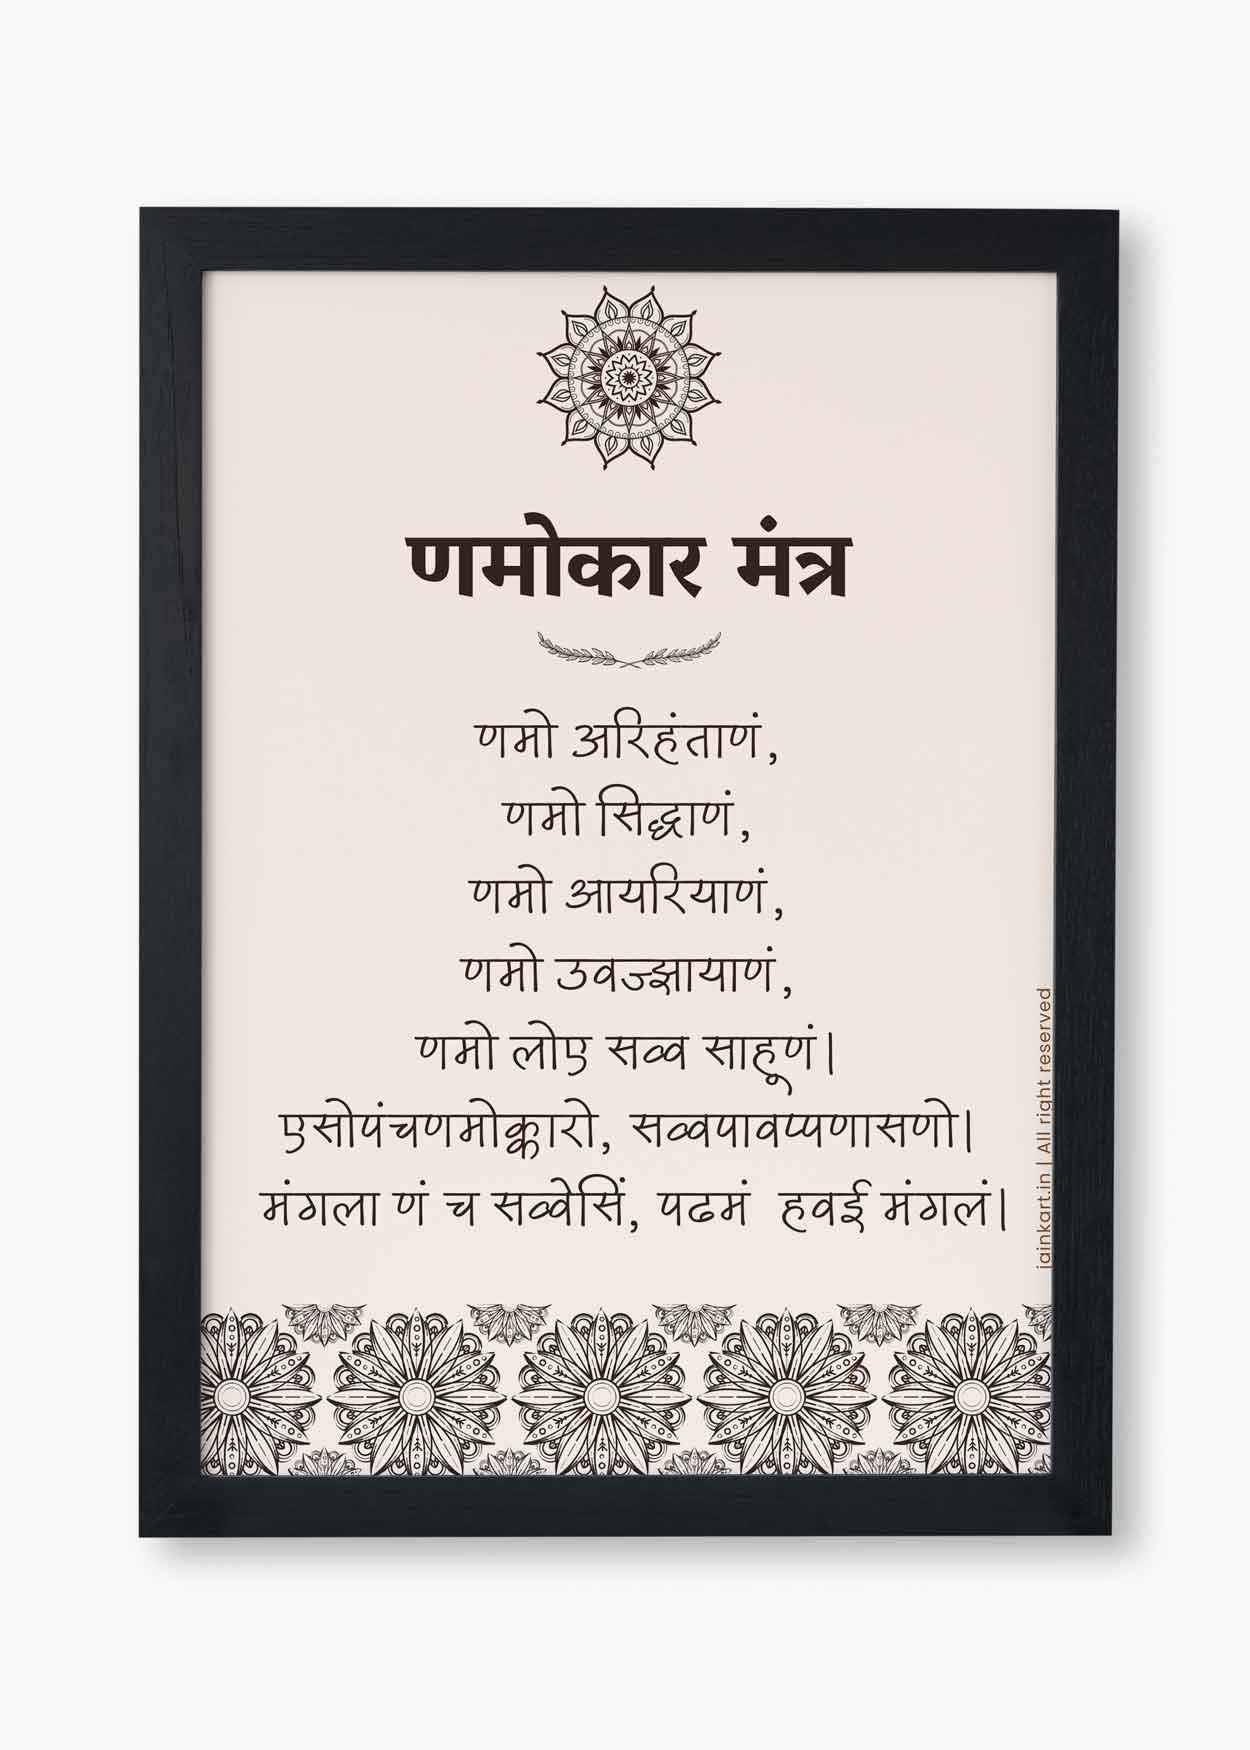 णमोकार मंत्र
णमो अरिहंताणं,
णमो सिद्धाणं,
णमो आयरियाणं,
णमो उवज्झायाणं,
णमो लोए सव्व साहूणं।
एसोपंचणमोक्कारो, सव्वपावप्पणासणो।
मंगला णं च सव्वेसिं, पढमं हवई मंगलं।
jainkart.in | All right reserved